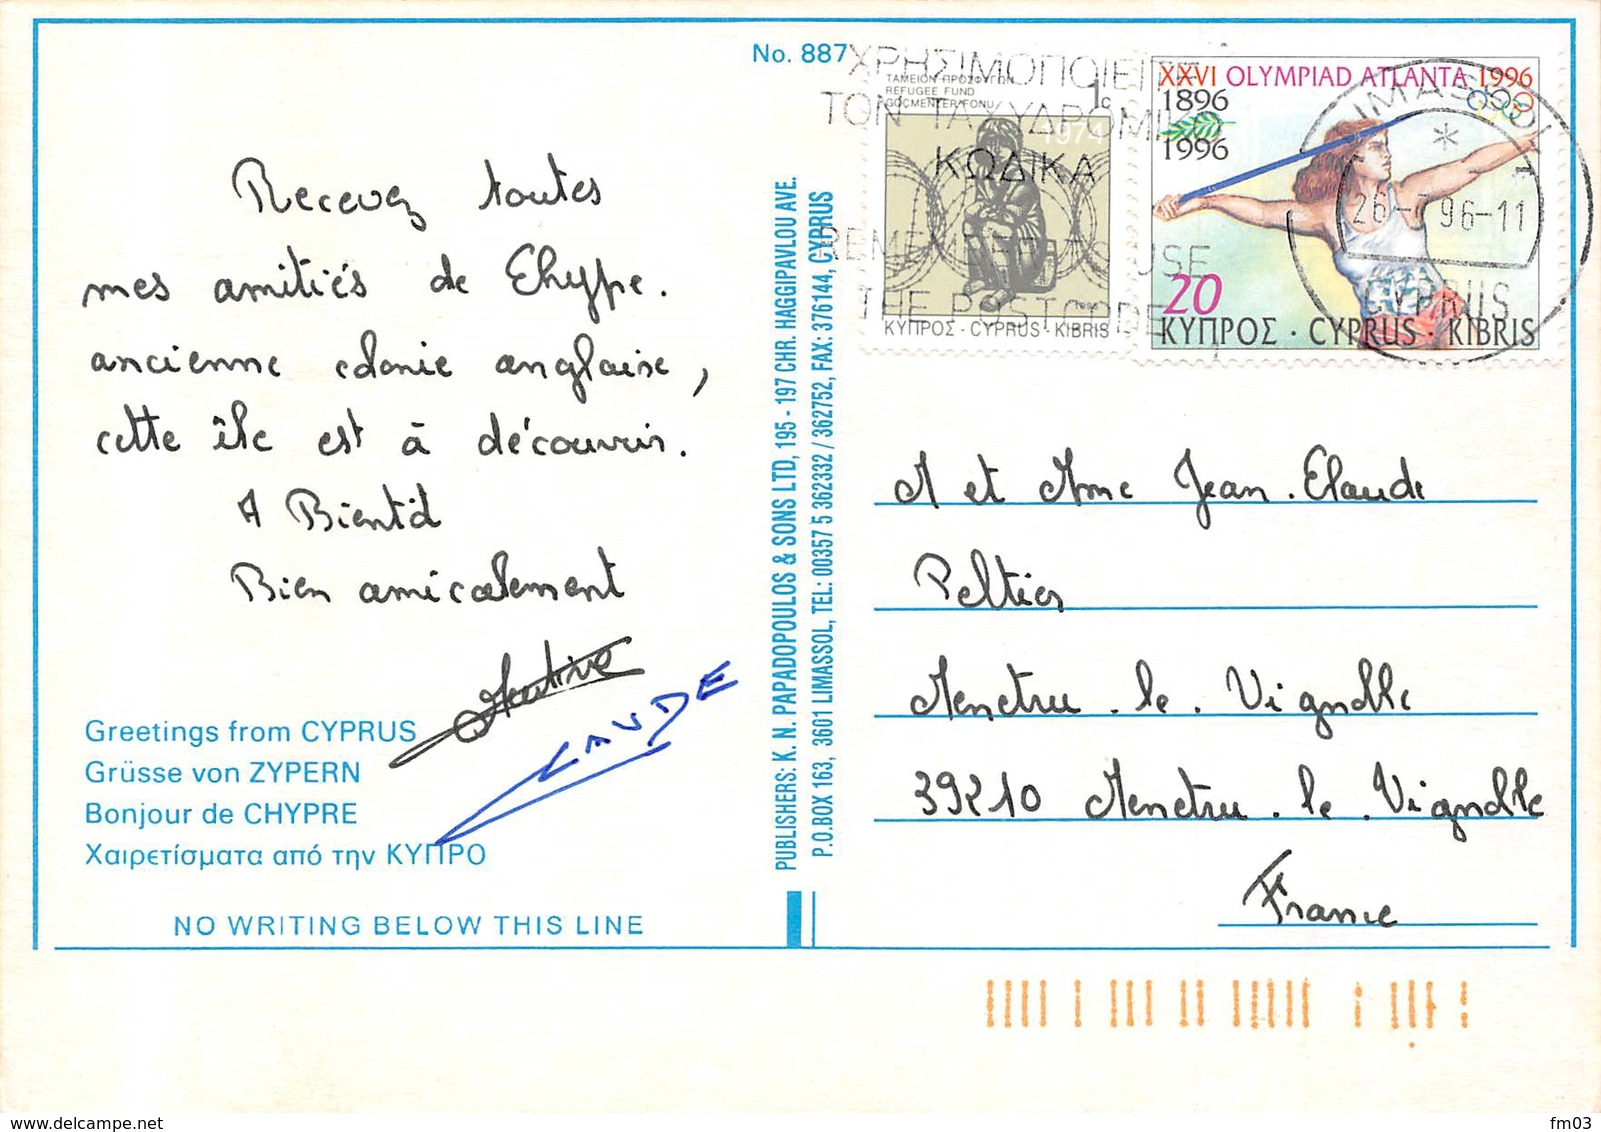 No. 887
ΧΡΗΣΙΜΟΠΟΙΕΙΤΕ
ΤΟΝ ΤΑΧΥΔΡΟΜΙΚΟ
ΚΩΔΙΚΑ
REMEMBER TO USE
THE POSTCODE
ΤΑΜΕΙΟΝ ΠΡΟΣΦΥΓΩΝ
REFUGEE FUND
GÖÇMENLER FONU
1c
1974
ΚΥΠΡΟΣ · CYPRUS · KIBRIS
XXVI OLYMPIAD ATLANTA 1996
1896
1996
20
ΚΥΠΡΟΣ · CYPRUS · KIBRIS
LIMASSOL
26- 96-11
CYPRUS
Recevez toutes
mes amitiés de Chypre.
ancienne colonie anglaise,
cette île est à découvrir.
A Bientôt
Bien amicalement
CLAUDE
Greetings from CYPRUS
Grüsse von ZYPERN
Bonjour de CHYPRE
Χαιρετίσματα από την ΚΥΠΡΟ
NO WRITING BELOW THIS LINE
PUBLISHERS: K. N. PAPADOPOULOS & SONS LTD, 195 - 197 CHR. HAGGIPAVLOU AVE.
P.O.BOX 163, 3601 LIMASSOL, TEL: 00357 5 362332 / 362752, FAX: 376144, CYPRUS
M et Mme Jean-Claude
Peltier
Menetru-le-Vignoble
39210 Menetru-le-Vignoble
France
delcampe.net
fm03